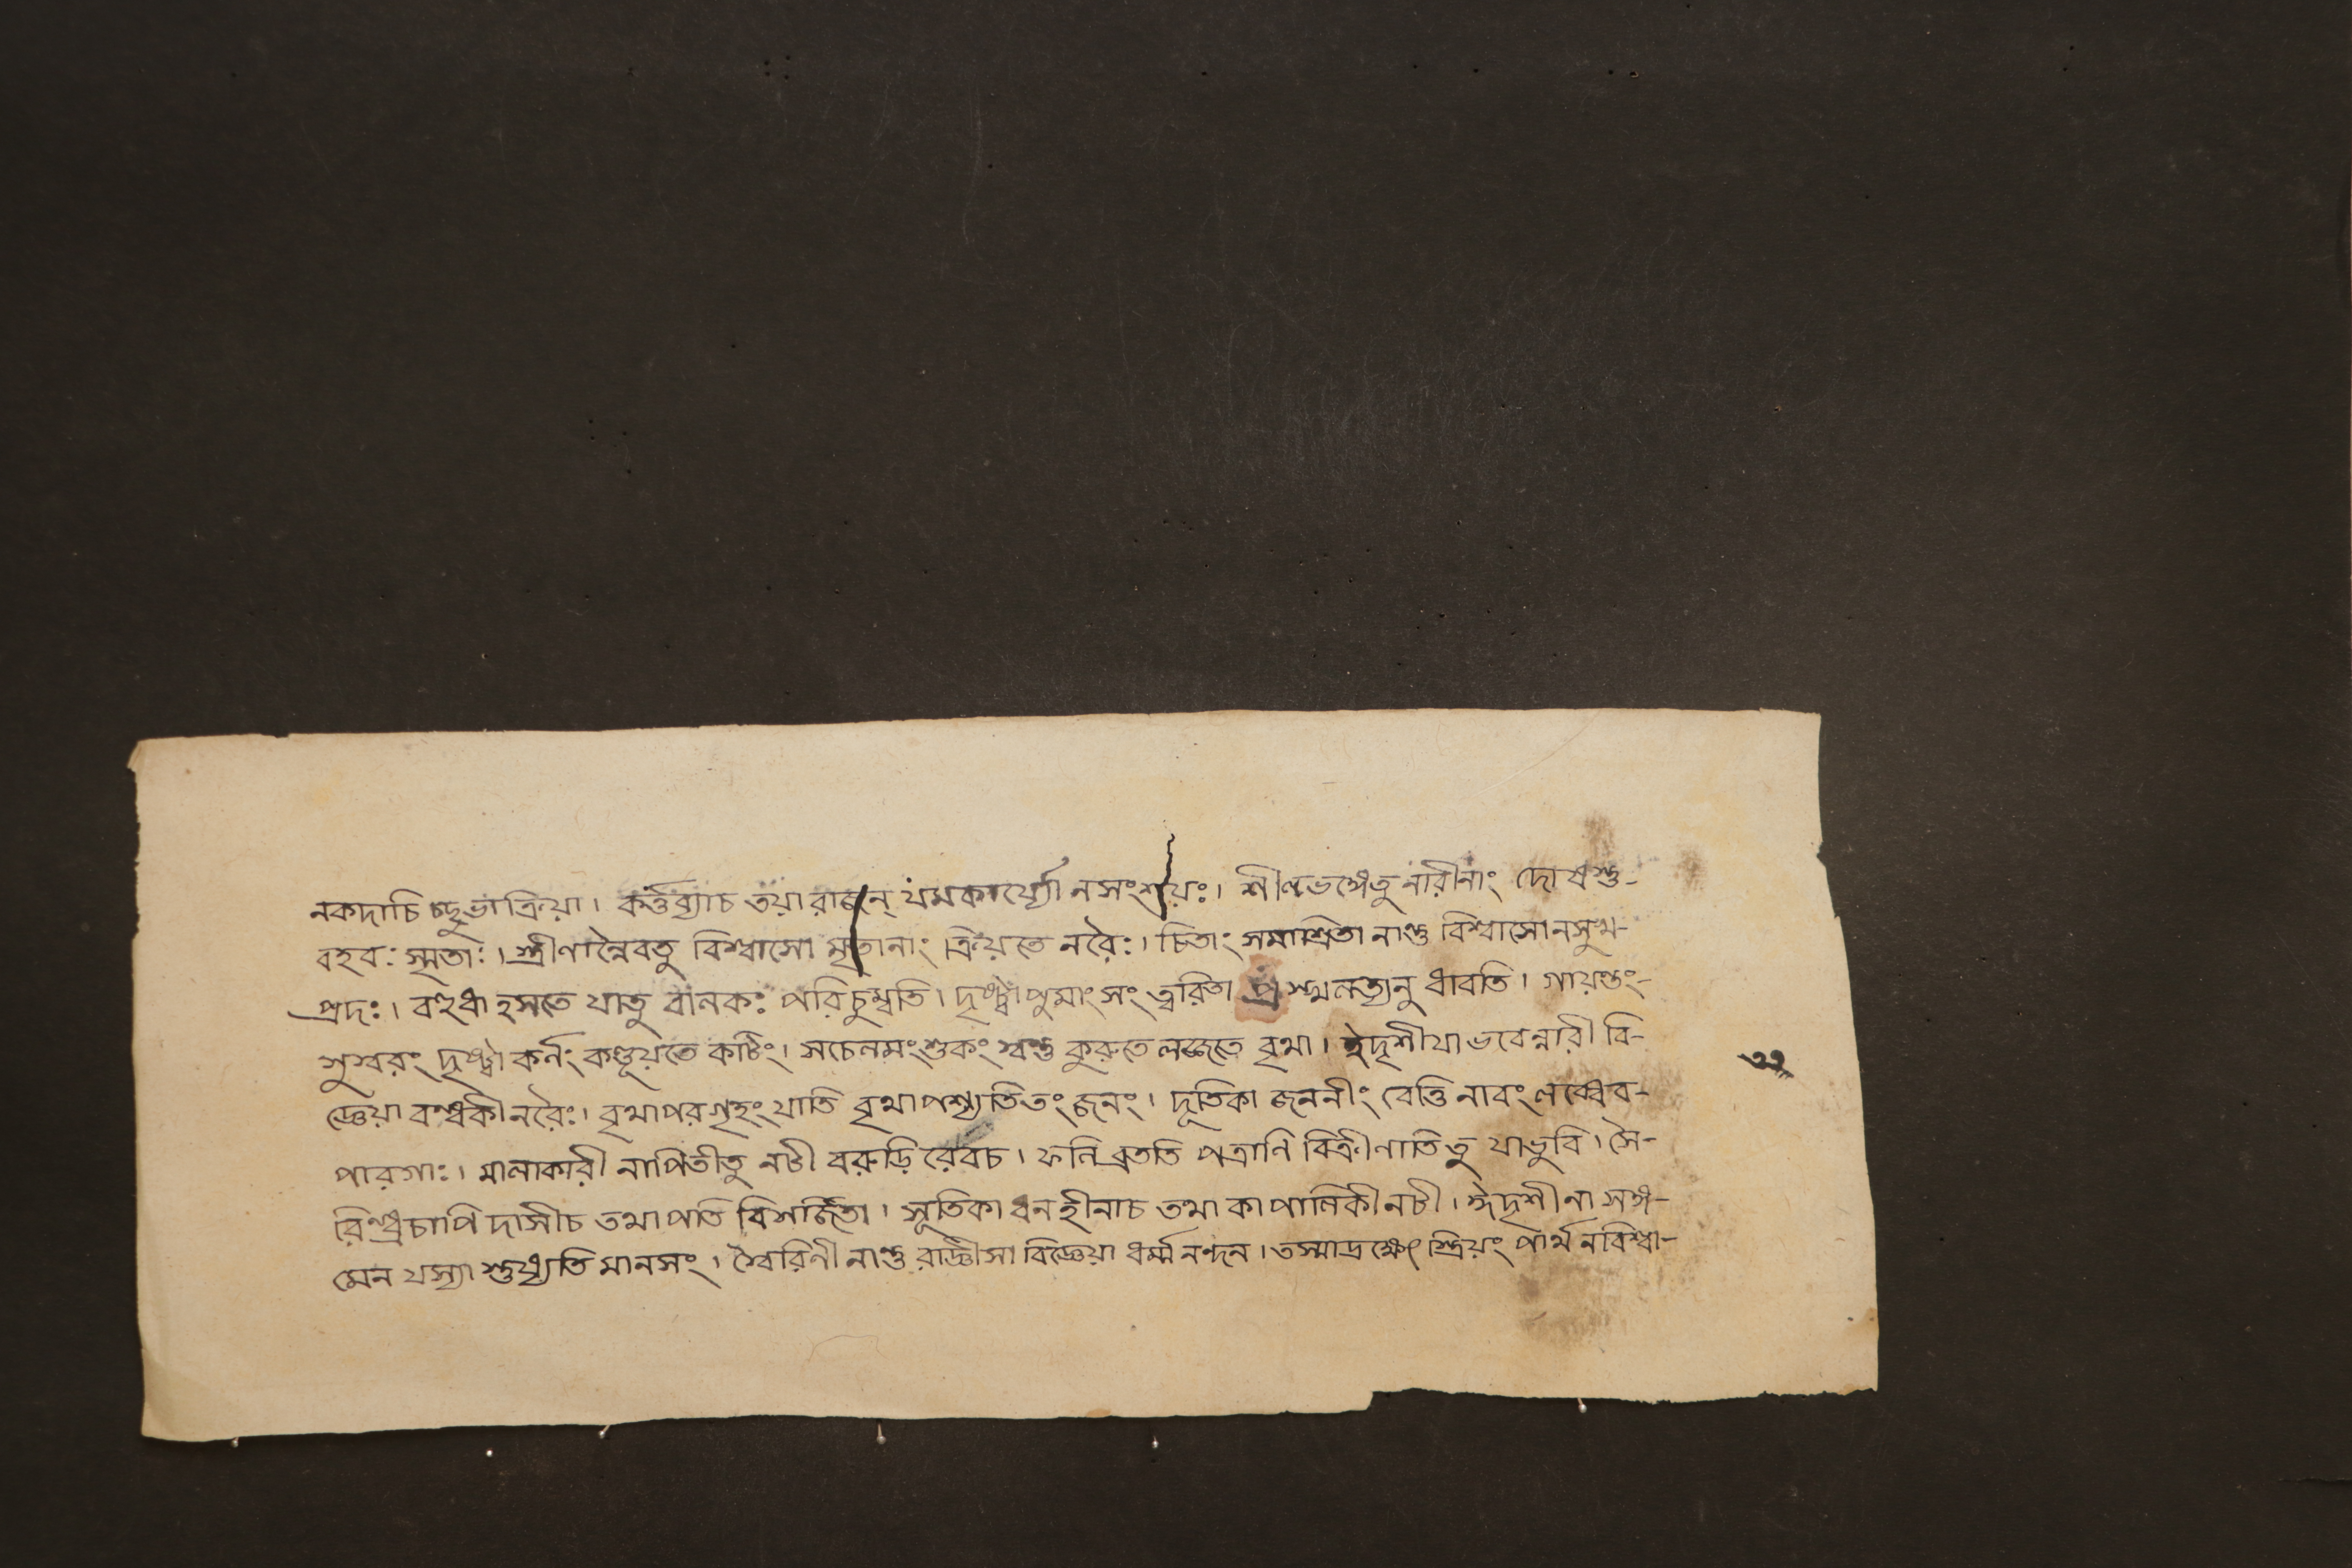 নকদাচি চ্ছুভাক্রিয়া। কর্ত্তব্যাচ তয়ারাজন্ যমকার্য্যে নসংশয়ঃ। শীলভঙ্গেতু নারীনাং দোষস্তু-
বহবঃ স্মৃতাঃ। স্ত্রীণান্নৈবতু বিশ্বাসো মৃতানাং ক্রিয়তে নরৈঃ। চিতাং সমাশ্রিতা নান্তু বিশ্বাসোনসুখ-
প্রদঃ। বহুধা হসতে যাতু বালকং পরিচুম্বতি। দৃষ্ট্বা পুমাংসং ত্বরিতা অনুধাবতি। গায়ন্তং-
সুস্বরং দৃষ্ট্বা কর্নং কণ্ডূয়তে কটিং। সচেলমংশুকং কুরুতে লজ্জতে বৃথা। ঈদৃশী যা ভবেন্নারী বি-
জ্ঞেয়া বন্ধকী নরৈঃ। বৃথাপরগৃহং যাতি বৃথাপশ্যতিতং জনং। দূতিকা জননীং বেত্তি নাবং লব্ধেব-
পারগাঃ। মালাকারী নাপিতীতু নটী বরুড়ি রেবচ। ফনি ব্রততি পত্রানি বিক্রীনাতি তু যাভুবি। সৈ-
রিন্ধ্রচাপি দাসীচ তথাপতি বিশর্জিতা। সূতিকা ধনহীনাচ তথা কাপালিকী নটী। ঈদৃশীনা সঙ্গ-
মেন যস্যা শুধ্যতি মানসং। স্বৈরিনী নান্তু রাজ্ঞীসা বিজ্ঞেয়া ধর্ম্মনন্দন। তস্মাদ্রক্ষেৎ স্ত্রিয়ং পার্থ নবিশ্বা-